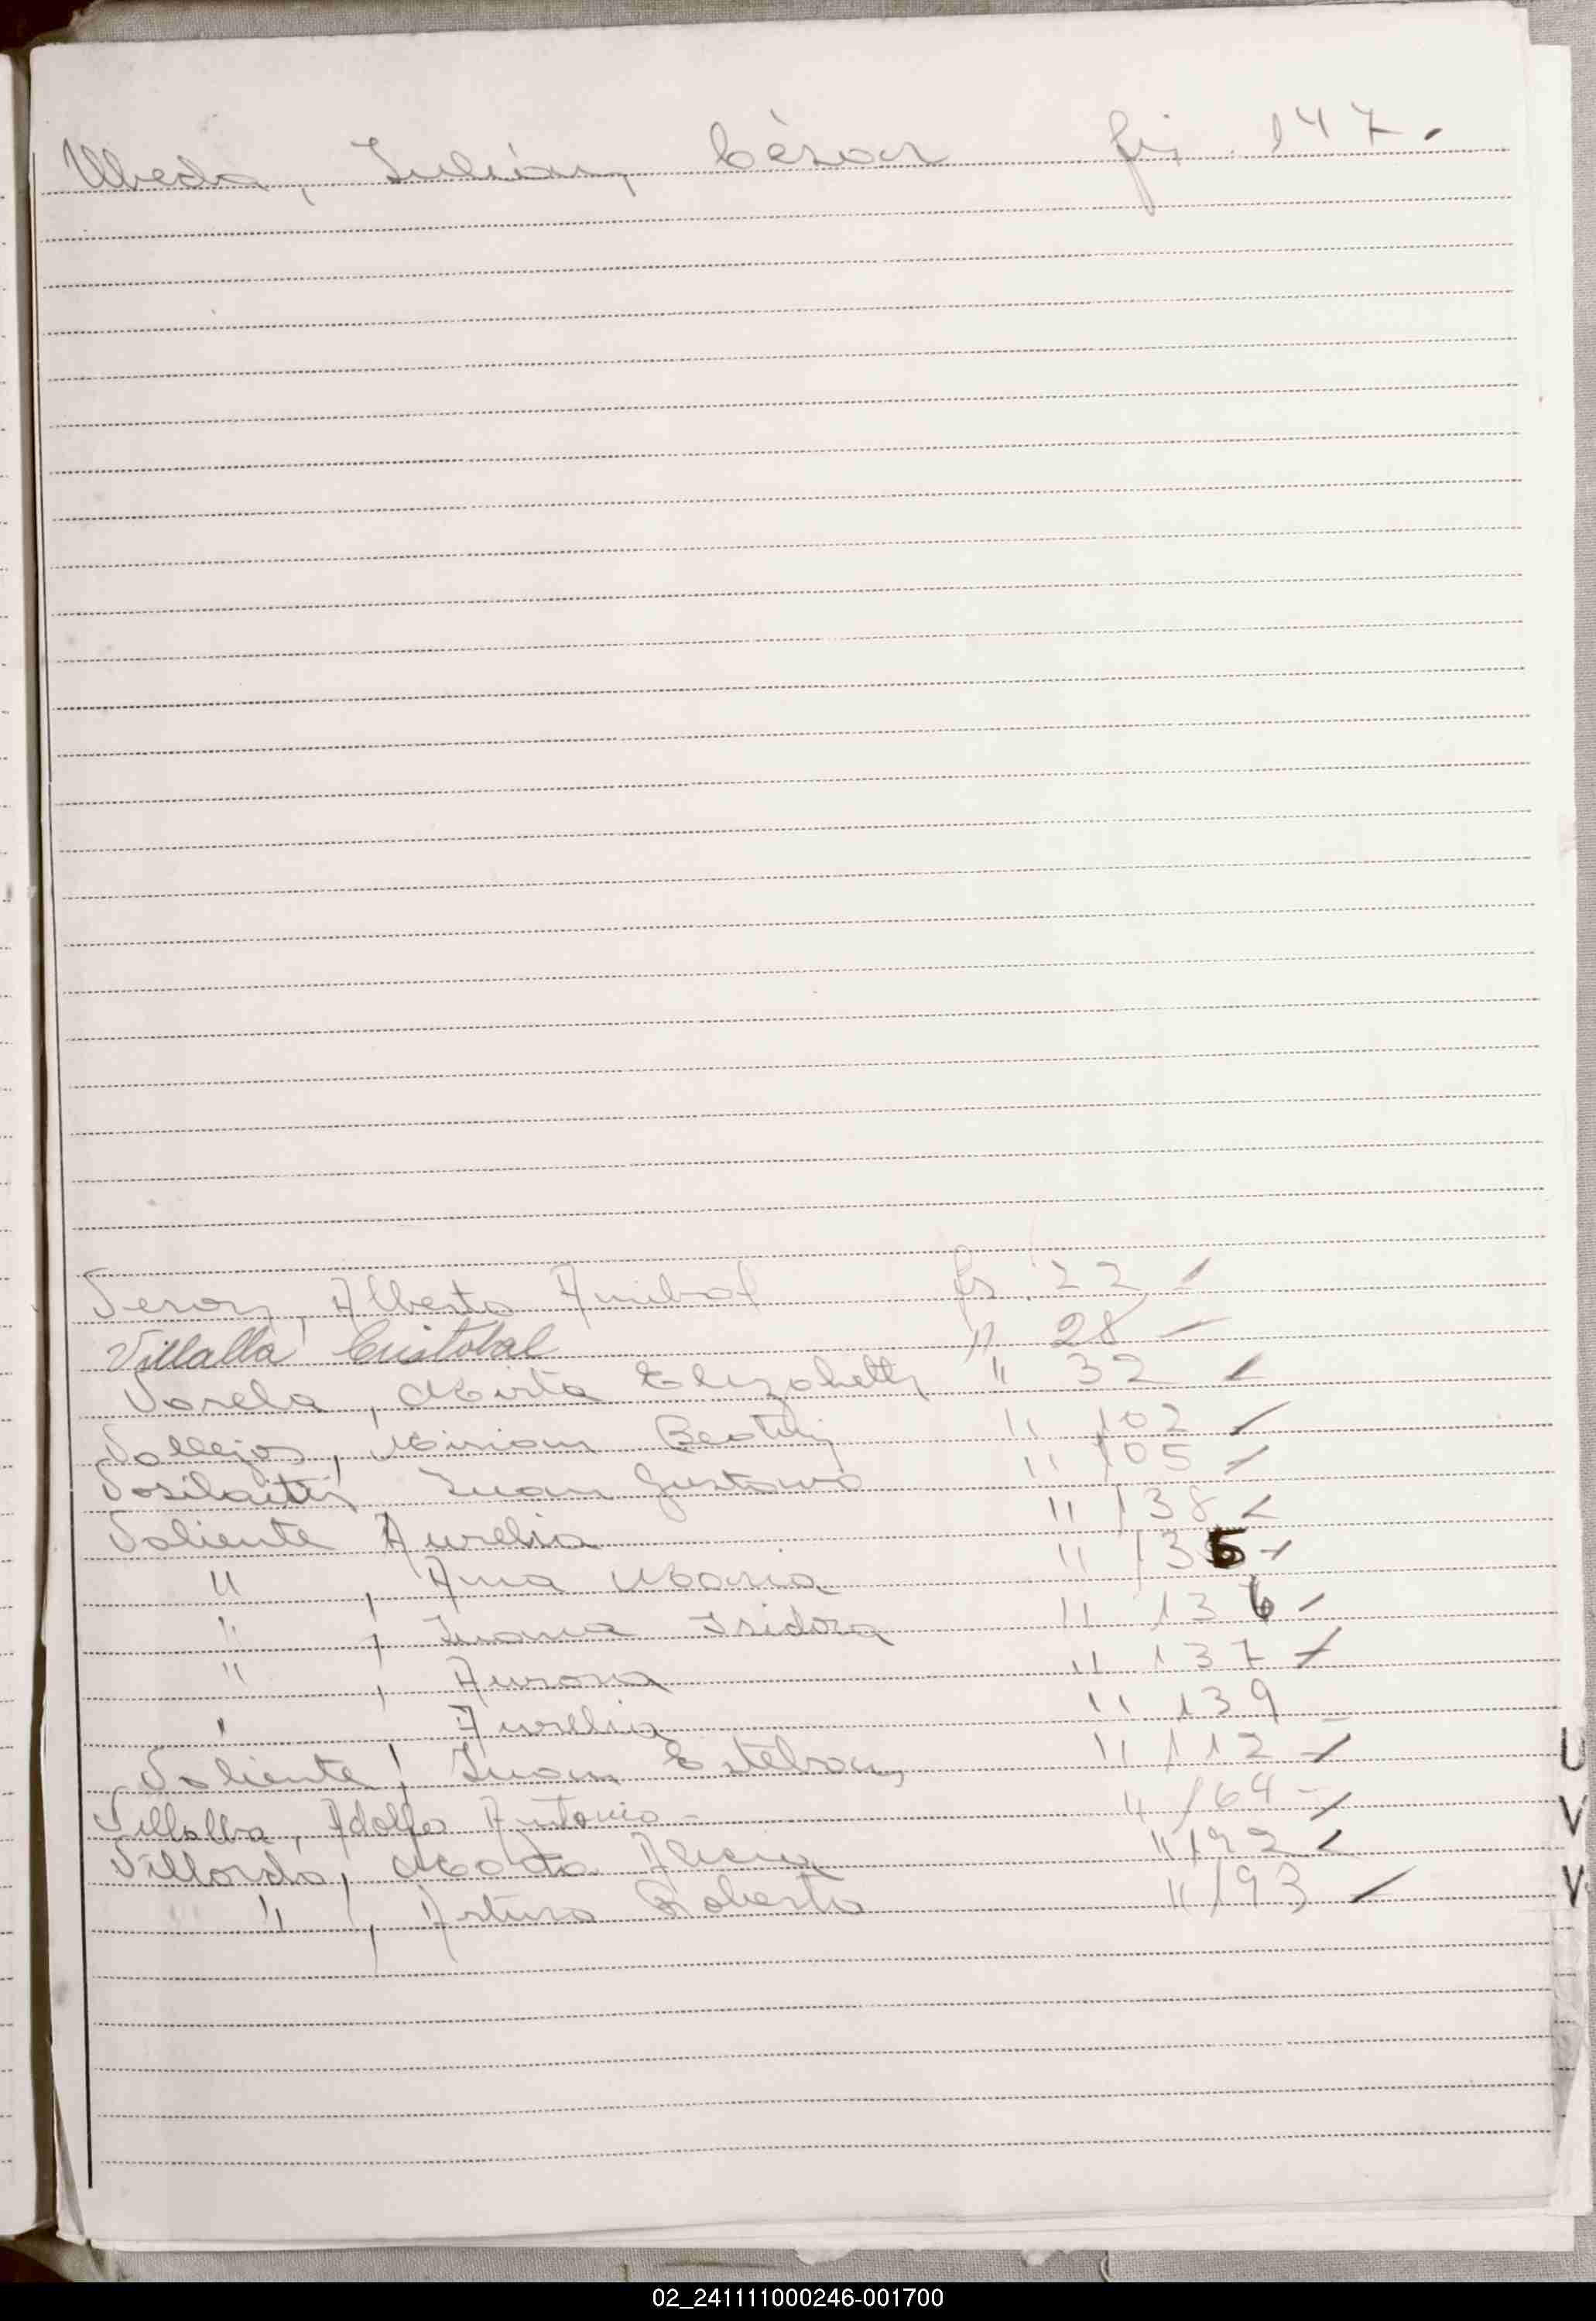 Ubeda, Julián, Cèsar fs. 147.
Veron, Alberto Anibal fs. 22
Villalla Cristobal " 28
Varela, Mirta Elizabeth " 32
Vallejos, Miriam Beatriz " 102
Juan Gustavo " 105
Valiente Aurelia " 138
" , Ana Maria " 135
" , Juana Isidora " 136
" , Aurora " 137
" Aurelia " 139
Valiente, Juan Esteban, " 112
Villalba, Adolfo Antonio - " 164 -
Villordo, Alicia " 192
" , Arturo Roberto " 193
U
V
V
02_241111000246-001700